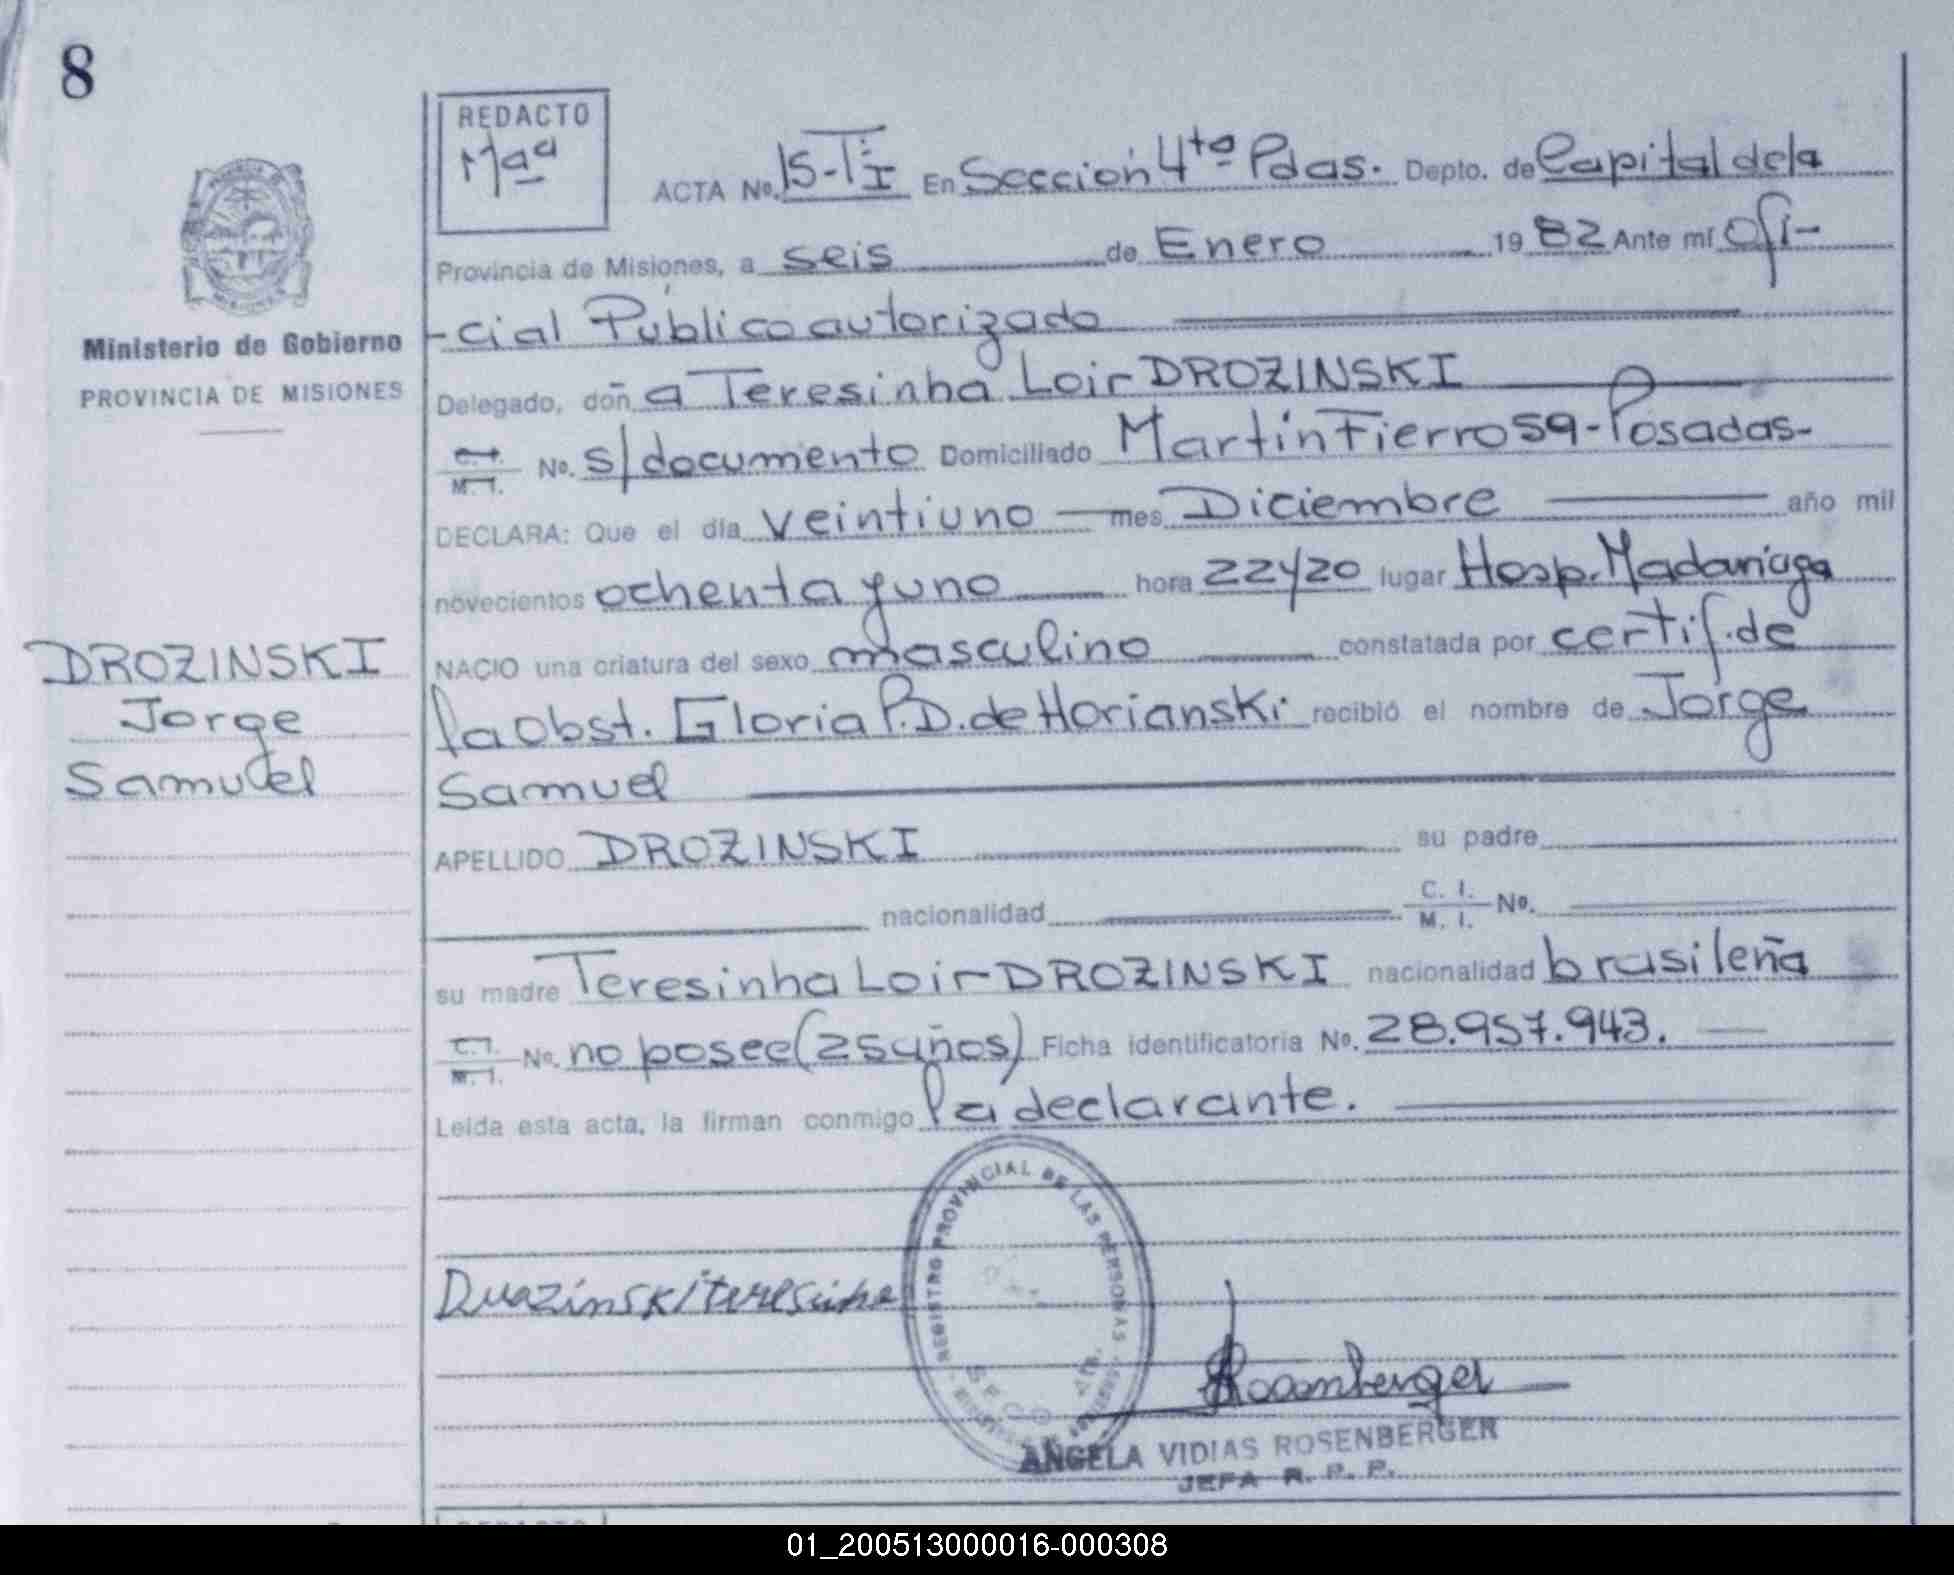 8
REDACTO
Mªª
ACTA No. 15-TºI En Sección 4ta Pdas. Depto. de Capital de la
Provincia de Misiones, a seis de Enero 1982 Ante mí Ofi-
-cial Público autorizado
Ministerio de Gobierno
PROVINCIA DE MISIONES
Delegado, doñ a Teresinha Loir DROZINSKI
C.I. M.I. No. s/documento Domiciliado Martín Fierro 59-Posadas-
DECLARA: Que el día veintiuno mes Diciembre año mil
novecientos ochenta y uno hora 22y20 lugar Hosp. Madariaga
DROZINSKI
Jorge
Samuel
NACIO una criatura del sexo masculino constatada por certif. de
la Obst. Gloria P.D. de Horianski recibió el nombre de Jorge
Samuel
APELLIDO DROZINSKI su padre
nacionalidad C. I. M. I. No.
su madre Teresinha Loir DROZINSKI nacionalidad brasileña
C.I. M.I. No. no posee (25 años) Ficha identificatoria No. 28.957.943.
Leída esta acta, la firman conmigo la declarante.
REGISTRO PROVINCIAL DE LAS PERSONAS
SECC 4ta.
Druazinski teresinha
Rosenberger
ANGELA VIDIAS ROSENBERGER
JEFA R. P. P.
REDACTO
01_200513000016-000308